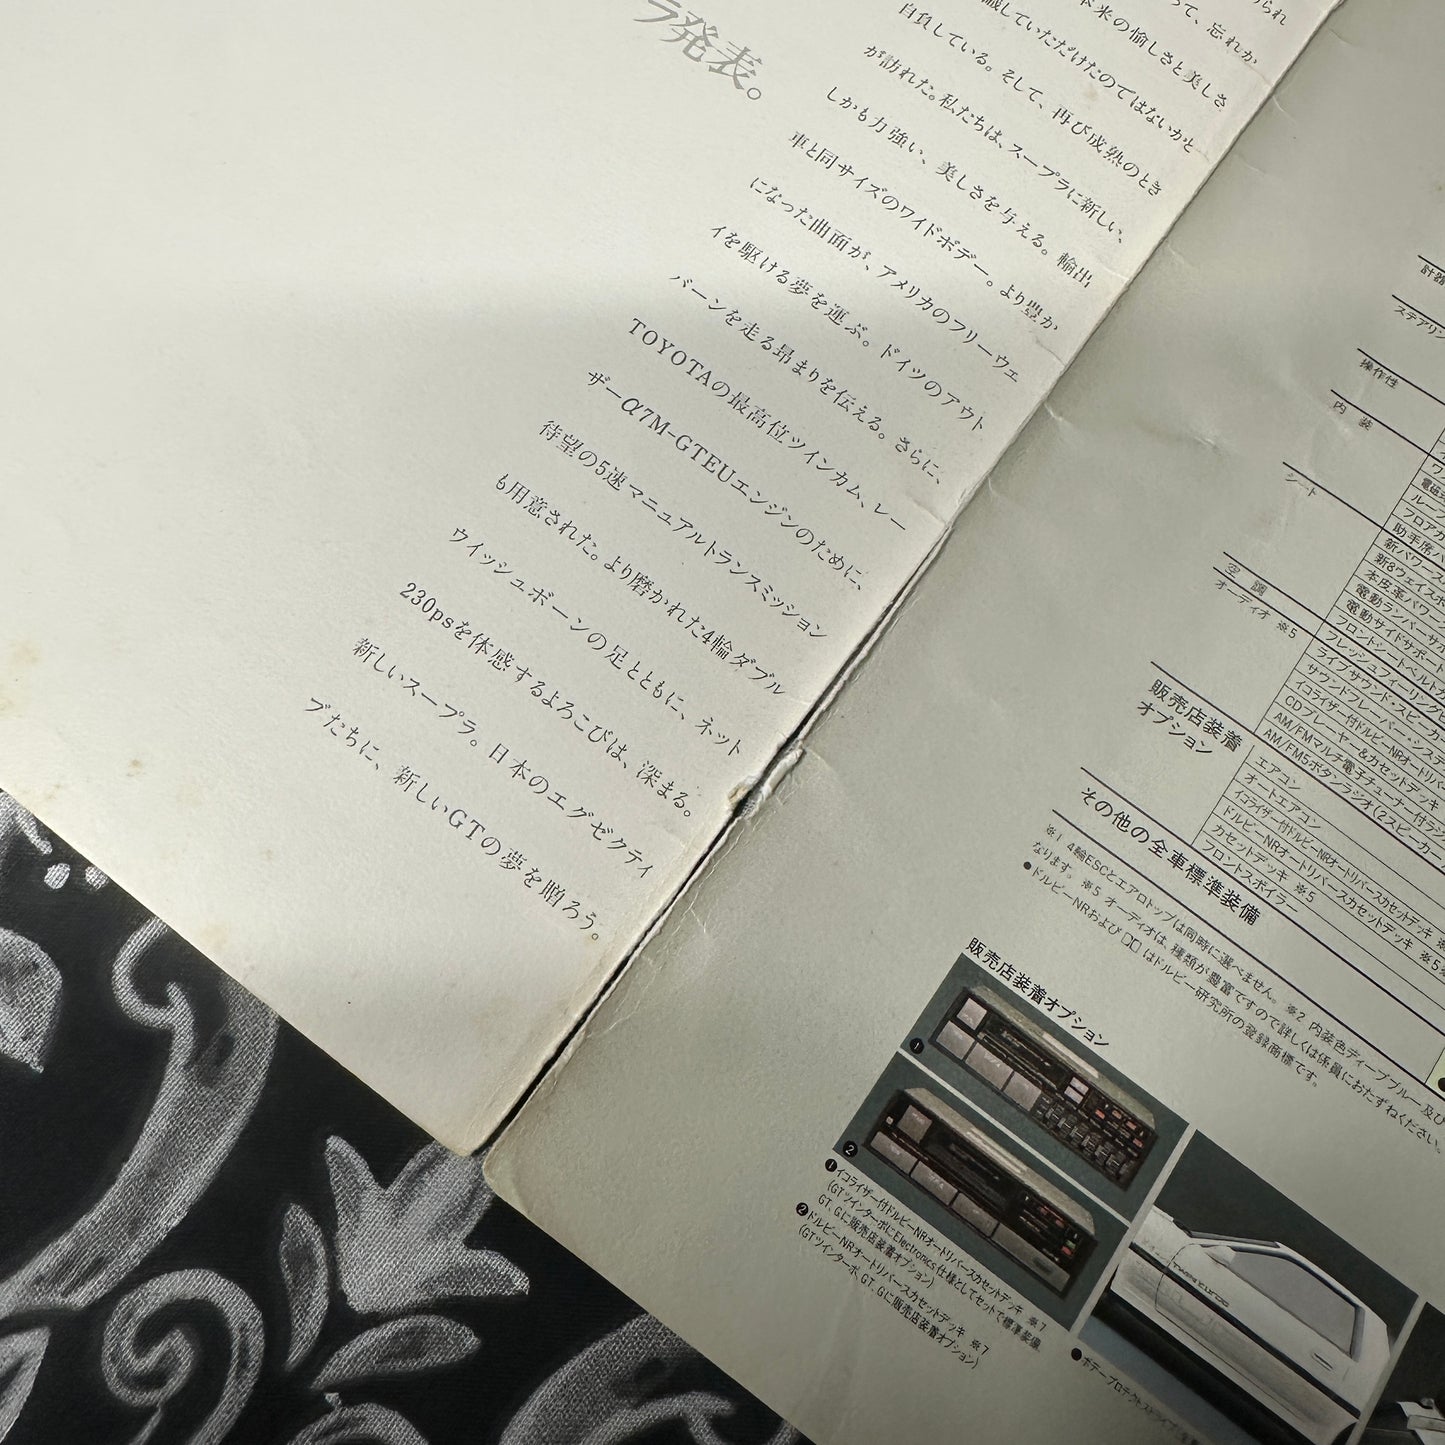 ラ発表。
られ
って、忘れか
本来の愉しさと美しさ
識していただけたのではないかと
自負している。そして、再び成熟のとき
が訪れた。私たちは、スープラに新しい、
しかも力強い、美しさを与える。輸出
車と同サイズのワイドボデー。より豊か
になった曲面が、アメリカのフリーウェ
イを駆ける夢を運ぶ。ドイツのアウト
バーンを走る昂まりを伝える。さらに、
TOYOTAの最高位ツインカム、レー
ザーα7M-GTEUエンジンのために、
待望の5速マニュアルトランスミッション
も用意された。より磨かれた4輪ダブル
ウイッシュボーンの足とともに、ネット
230psを体感するよろこびは、深まる。
新しいスープラ。日本のエグゼクティ
ブたちに、新しいGTの夢を贈ろう。
計器
ステアリン
操作性
内 装
シート
空 調
オーディオ ※5
販売店装着
オプション
電磁
ルーフ
フロアカ
助手席
新パワース
新8ウェイスポ
本皮革パワ
電動ランバーサ
電動サイドサポート
フロントシートベルト
フレッシュフィーリング
ライブサウンド・スピーカー
サウンドフレーバー・システ
イコライザー付ドルビーNRオートリバースカ
CDプレーヤー&カセットデッキ
AM/FMマルチ電子チューナー付ラジ
AM/FM5ボタンラジオ(2スピーカー
エアコン
オートエアコン
イコライザー付ドルビーNRオートリバースカセットデッキ
ドルビーNRオートリバースカセットデッキ ※5
カセットデッキ ※5
フロントスポイラー
その他の全車標準装備
※1 4輪ESCとエアロトップは同時に選べません。 ※2 内装色ディープブルー及び
なります。 ※5 オーディオは、種類が豊富ですので詳しくは係員におたずねください。
●ドルビーNRおよび はドルビー研究所の登録商標です。
販売店装着オプション
❶
❷
❶イコライザー付ドルビーNRオートリバースカセットデッキ ※7
(GTツインターボにElectronics仕様としてセットで標準装備、
GT、Gに販売店装着オプション)
❷ドルビーNRオートリバースカセットデッキ ※7
(GTツインターボ、GT、Gに販売店装着オプション)
●ボデープロテクトストライプ